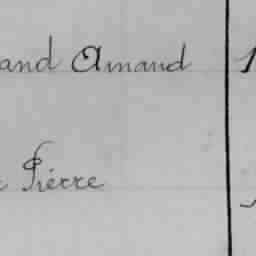 and Amand 1
Piérre